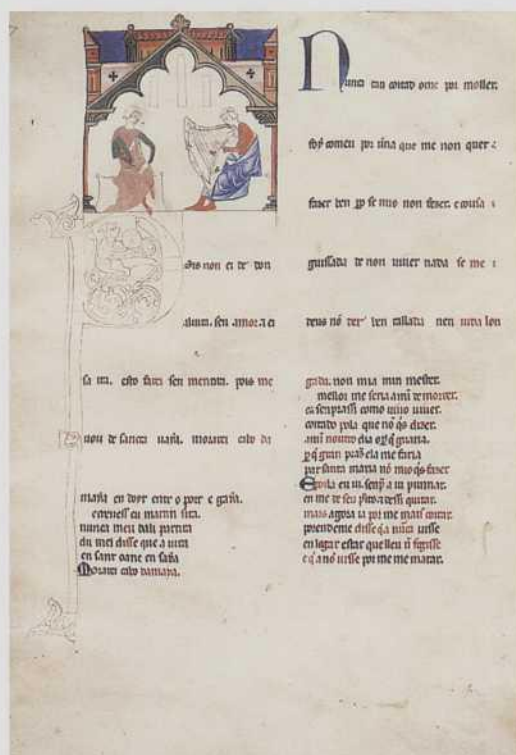 ois non ei de don
aluira. seu amor. a ei
sa ira. esto farei sen mentira. pois me
uou de sancta uaya. morarei cabo da
maya en doyr entr o port e gaya.
creuess eu martin sira.
nunca meu dali partira
du mei disse que a uira
en sant oane en saya
Morarei cabo damaya.
Nunca tan coitad ome por moller.
foy comeu por ũna que me non quer
fazer ben p̱o se mio non fezer. e cousa
guissada de non uiuer nada se me
deus nõ der ben tallada nen uida lon
gada. non mia min mester.
mellor me seria ami de morrer.
ca senprassi como uiuo uiuer.
coitado pola que nõ q̇s dizer.
ami noutro dia er q̇ guaria.
p q̇ gran praz ela me faria
par santa maria nõ mio q̇s fazer
E pola eu ui. senp̱ a ui punnar.
en me de seu p̱ito a dessi quitar.
mais agora ia por me mais coitar.
poendeme disse q̇a nũca uisse
en logar estar que lleu ñ fogisse
e q̇ anõ uisse por me me matar.